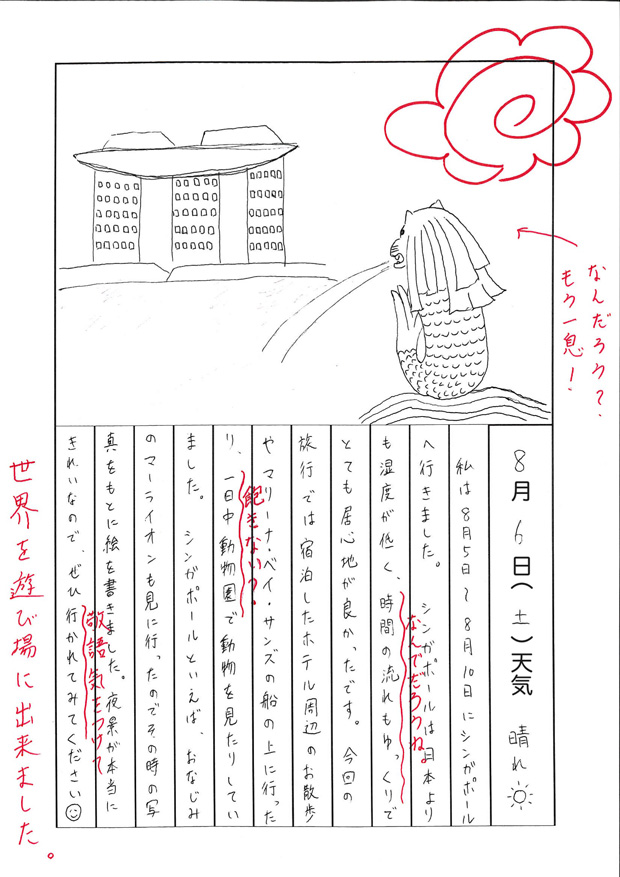 8月6日(土)天気 晴れ
私は8月5日〜8月10日にシンガポール
へ行きました。シンガポールは日本より
も湿度が低く、時間の流れもゆっくりで
とても居心地が良かったです。今回の
旅行では宿泊したホテル周辺のお散歩
やマリーナ・ベイ・サンズの船の上に行った
り、一日中動物園で動物を見たりしてい
ました。シンガポールといえば、おなじみ
のマーライオンも見に行ったのでその時の写
真をもとに絵を書きました。夜景が本当に
きれいなので、ぜひ行かれてみてください
なんだろう?
もう一息!
なんでだろうね。
飽きない?
敬語気をつけて
世界を遊び場に出来ました。